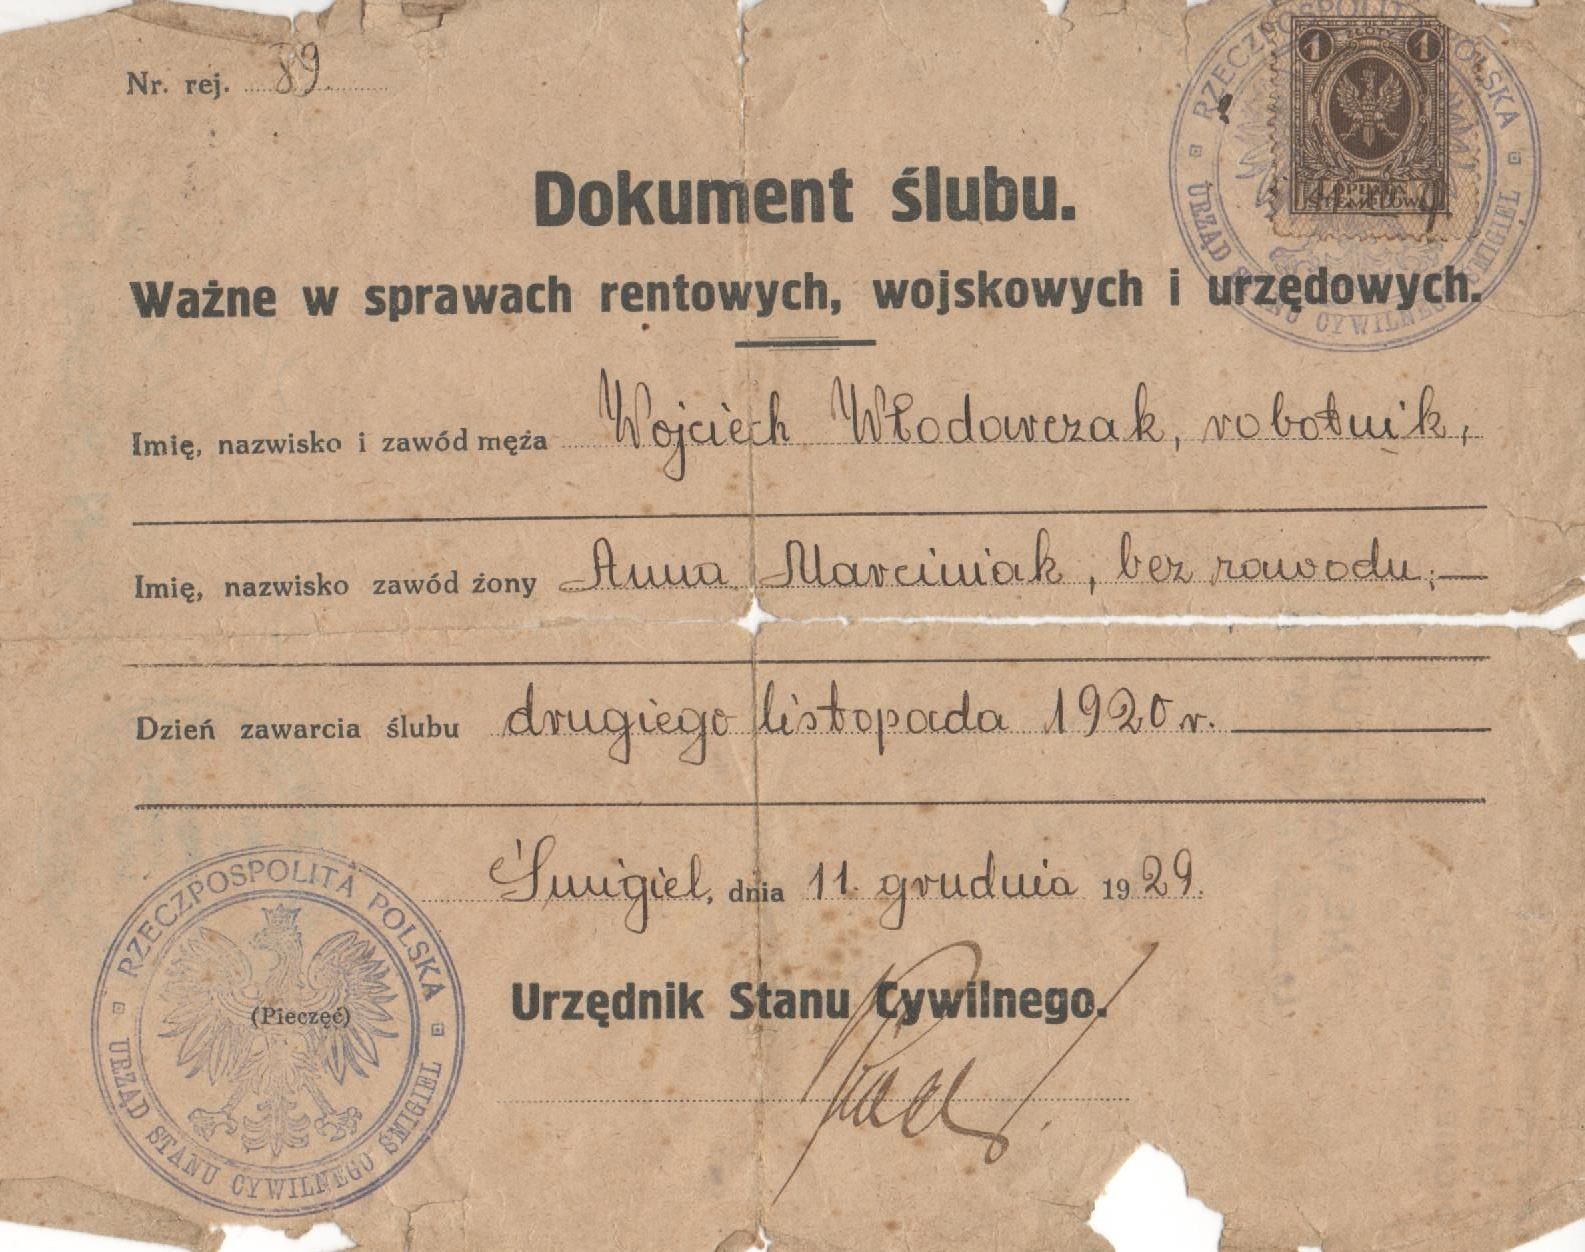 Nr. rej. 89.
RZECZPOSPOLITA POLSKA
URZĄD STANU CYWILNEGO ŚMIGIEL
1 ZŁOTY 1
OPŁATA
STEMPLOWA
Dokument ślubu.
Ważne w sprawach rentowych, wojskowych i urzędowych.
Imię, nazwisko i zawód męża Wojciech Włodarczak, robotnik,
Imię, nazwisko zawód żony Anna Marciniak, bez zawodu;
Dzień zawarcia ślubu drugiego listopada 1920 r.
Śmigiel, dnia 11. grudnia 1929.
RZECZPOSPOLITA POLSKA
(Pieczęć)
URZĄD STANU CYWILNEGO ŚMIGIEL
Urzędnik Stanu Cywilnego.